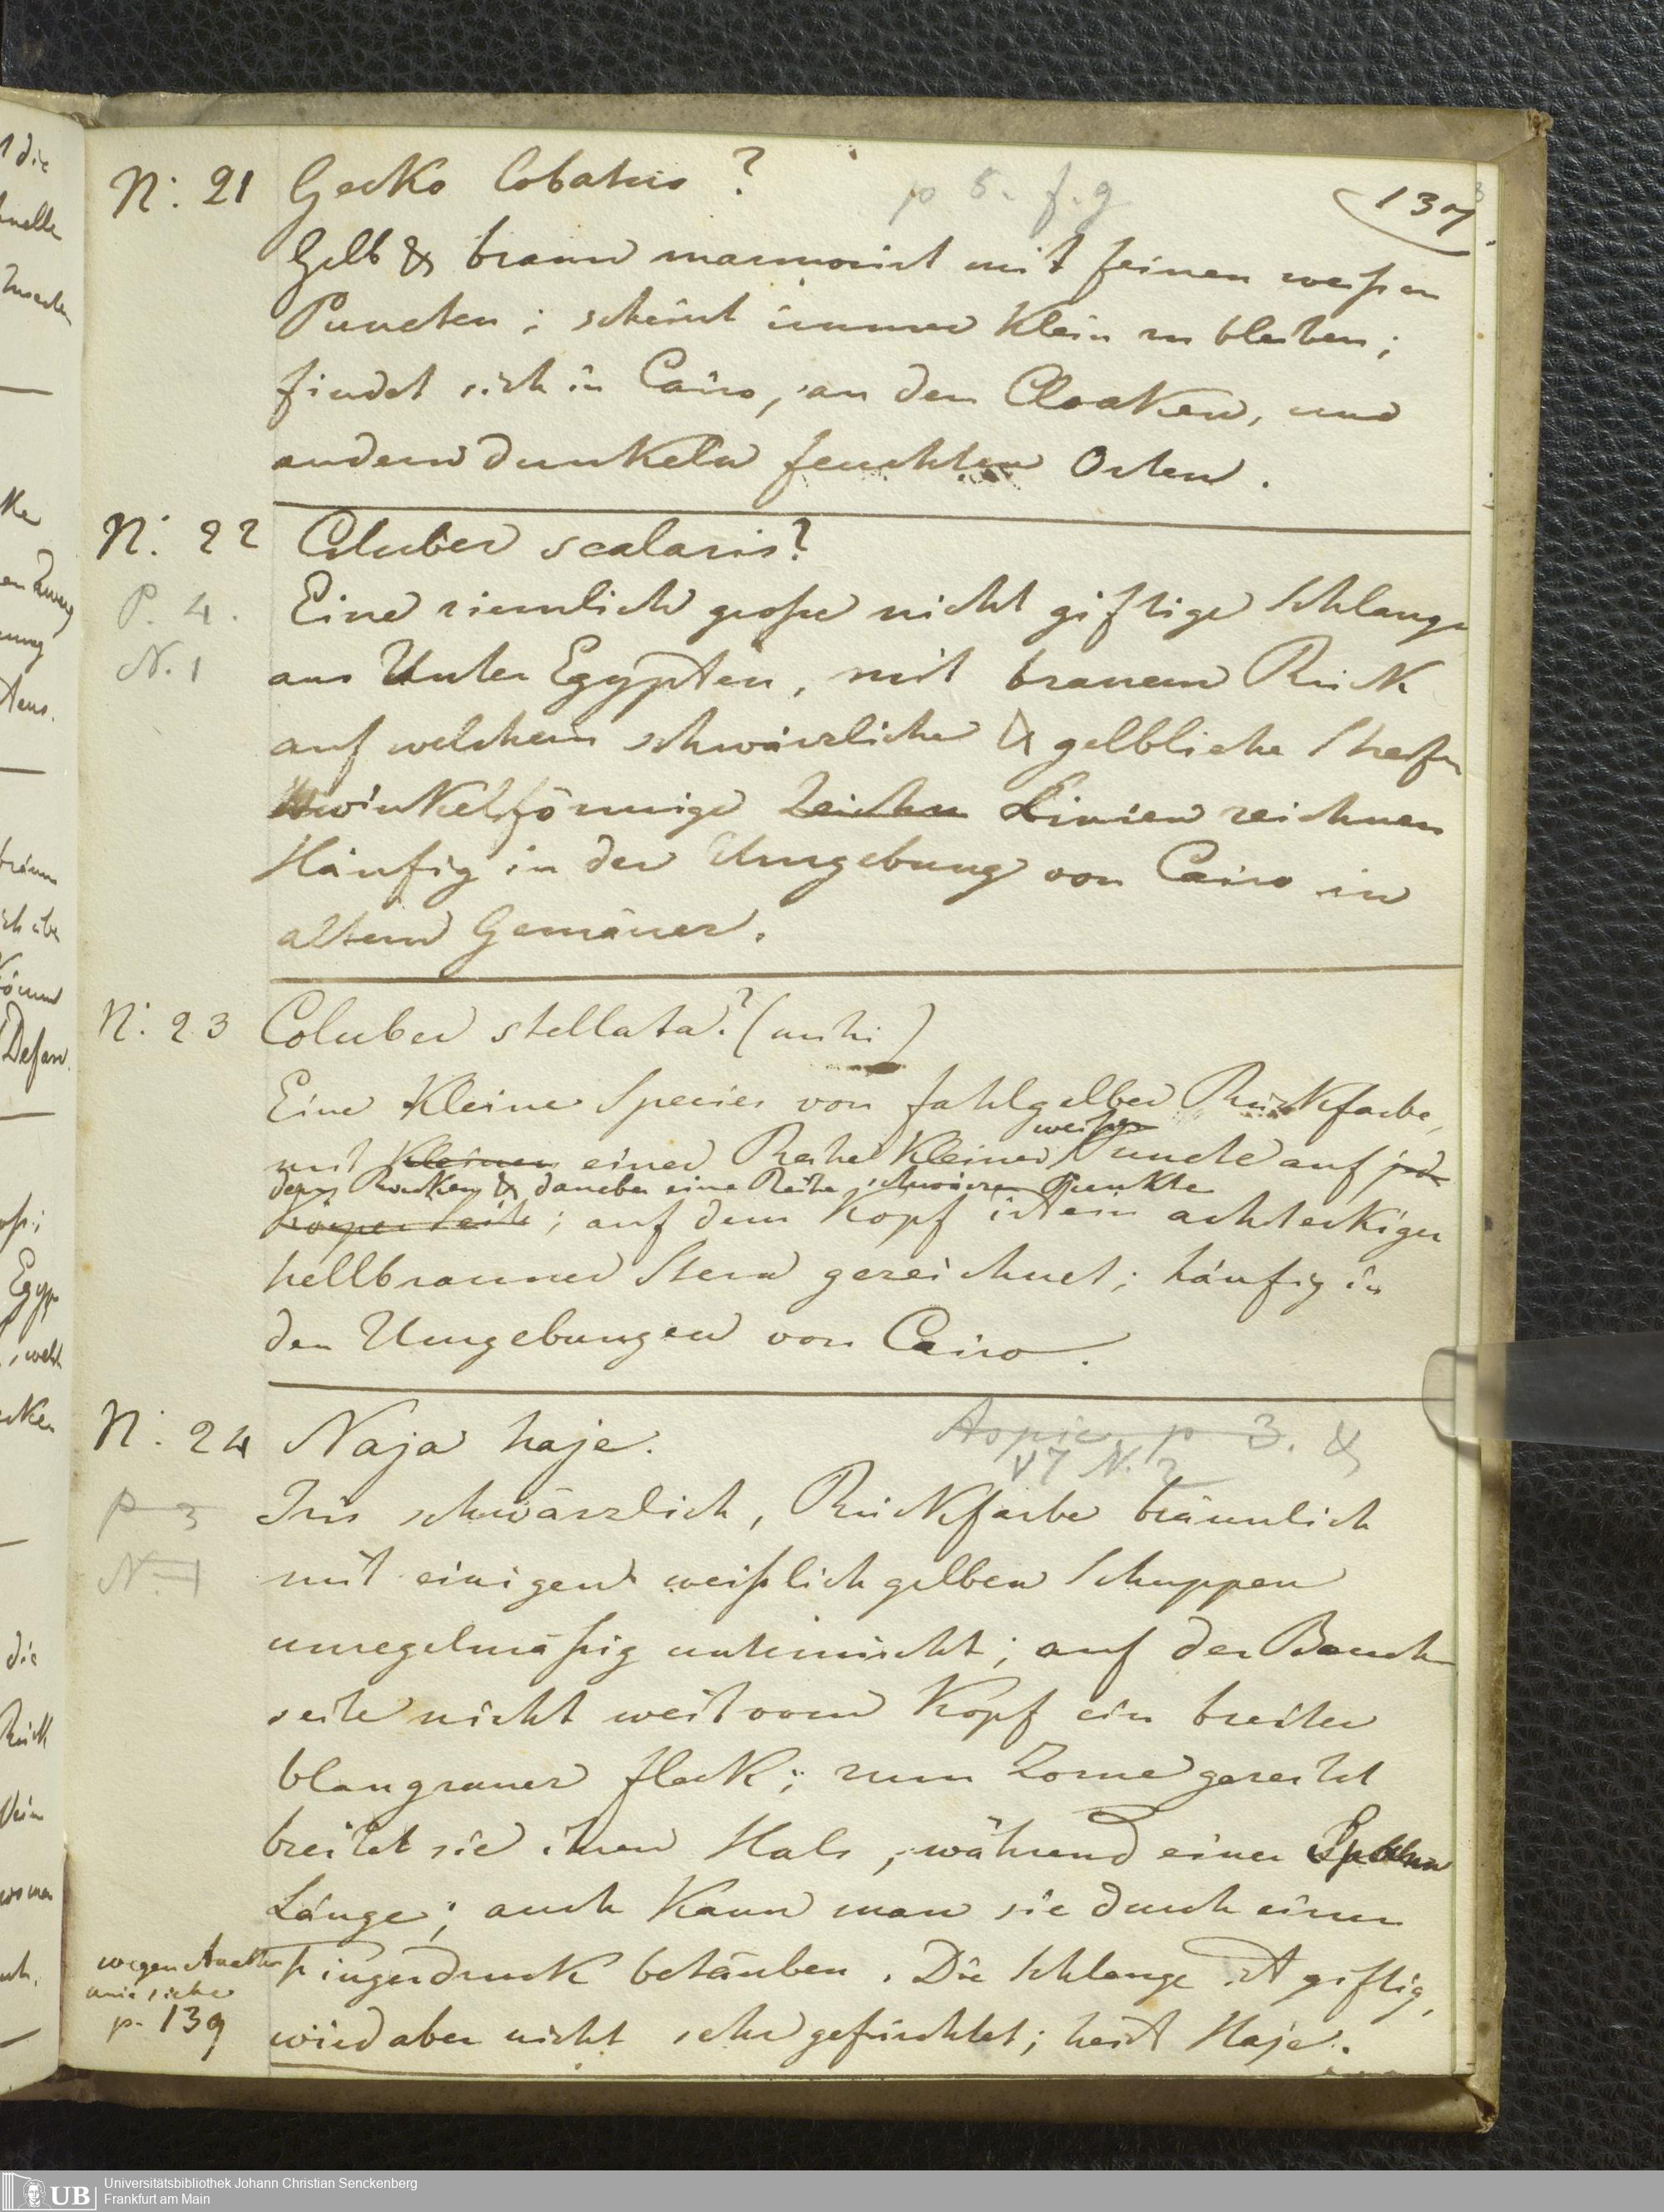 137.
N: 21 Gecko lobatus ? p 5. f. g
Gelb & braun marmorirt mit feinen weißen
Puncten; scheint immer klein zu bleiben;
findet sich in Cairo, an den Cloaken, und
andern dunkeln feuchten Orten.
N: 22 Coluber scalaris?
P. 4. Eine ziemlich große nicht giftige Schlange
N. 1 aus Unter Egypten, mit braunem Rück
auf welchem schwärzliche & gelbliche Streifen
winkelförmige Zeichen Linien zeichnen
Häufig in der Umgebung von Cairo in
altem Gemäuer.
N: 23 Coluber stellata? (mihi)
Eine kleine Species von fahlgelber Rückfarbe,
weißer
mit kleinen einer Reihe kleiner Puncte auf jede
dem Rücken & daneben eine Reihe schwarzer Punkte
Körperseite; auf dem Kopf ist ein achteckiger
hellbrauner Stern gezeichnet; häufig in
den Umgebungen von Cairo.
N: 24 Naja haje. Aspic p 3. &
N. 2
p 3 Iris schwärzlich, Rückfarbe bräunlich
N. 1 mit einigen weißlich gelben Schuppen
unregelmäßig untermischt; auf der Bauch
seite nicht weit vom Kopf ein breiter
blaugrauer Fleck; zum Zorne gereitzt
breitet sie ihren Hals, während einer
Länge; auch kann man sie durch einen
wegen Fingerdruck betäuben. Die Schlange ist giftig,
siehe
p. 139 wird aber nicht sehr gefürchtet; heist Haje.
Universitätsbibliothek Johann Christian Senckenberg
Frankfurt am Main
UB